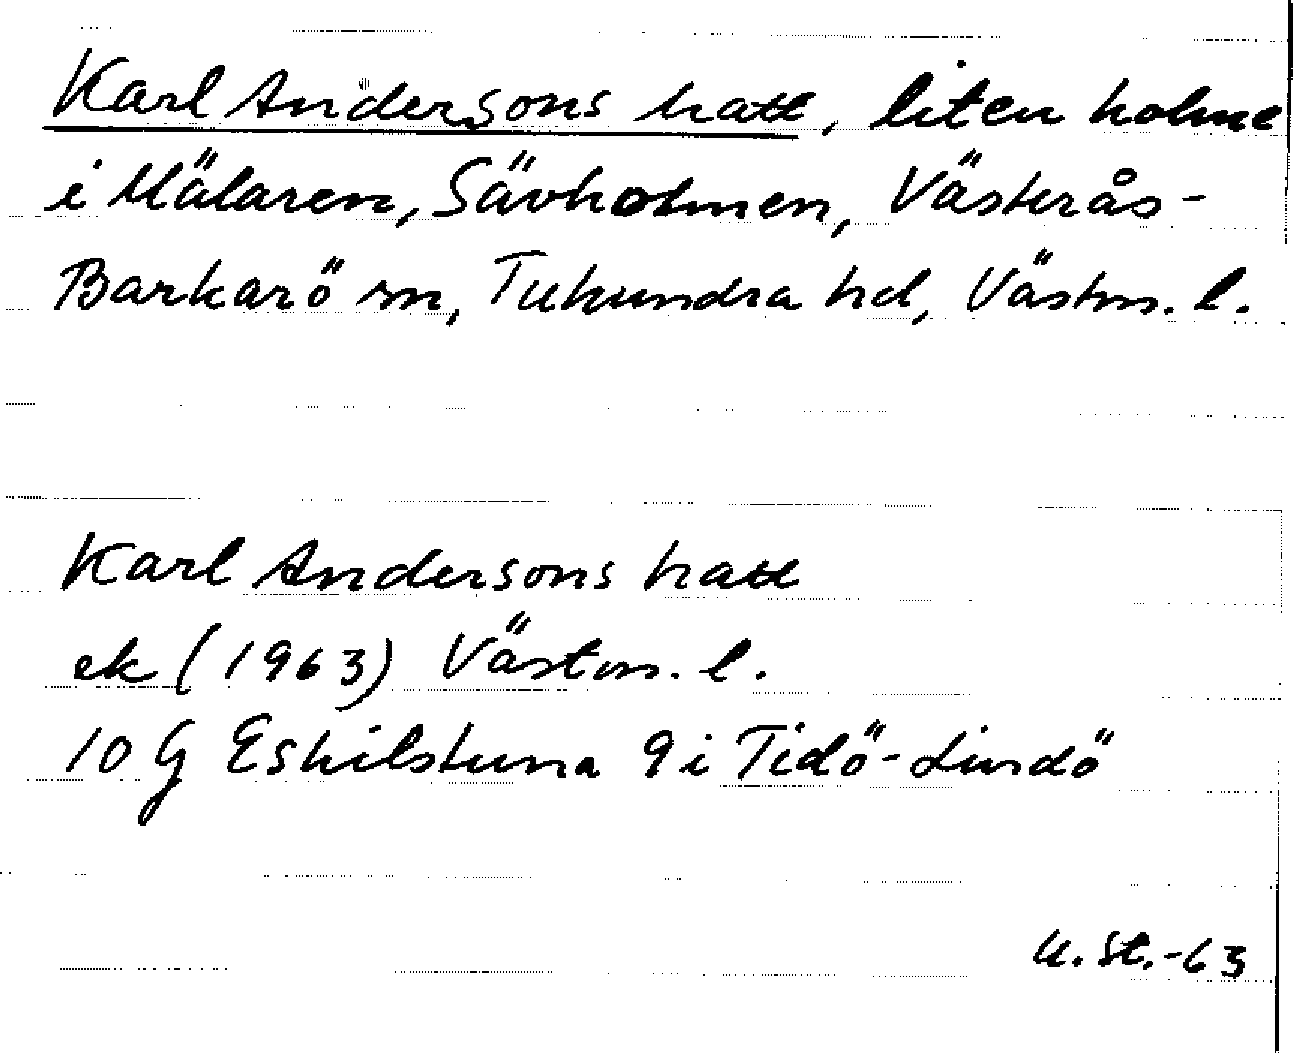 Karl Andersons hatt, liten holme
i Mälaren, Sävholmen, Västerås-
Barkarö sn, Tuhundra hd, Västm. l.
Karl Andersons hatt
ek (1963) Västm. l.
10 G Eskilstuna 9 i Tidö-Lindö
U. St. -63